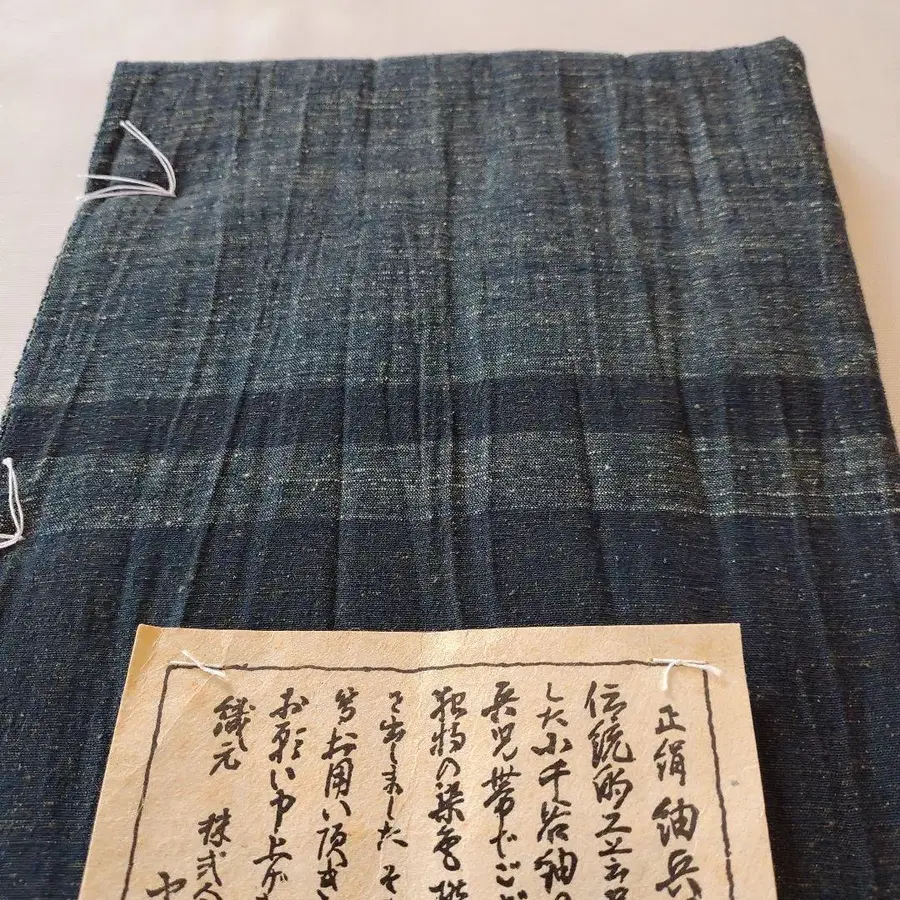 正絹紬兵
伝統的工芸
した小千谷紬の
兵児帯でござ
独特の染色
を出しました そ
お用い頂き
お願い申上が
織元 株式会